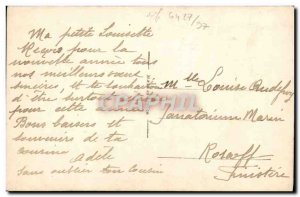 Ma petite Louisette
Reçois pour la
nouvelle année tous
nos meilleurs vœux
sincères, et te souhaitons
d'être surtout
pour cette
Bons baisers et
souvenirs de ta
cousine
Adèle
Sans oublier ton cousin
Mlle Louise
Sanatorium Marin
Roscoff
Finistère